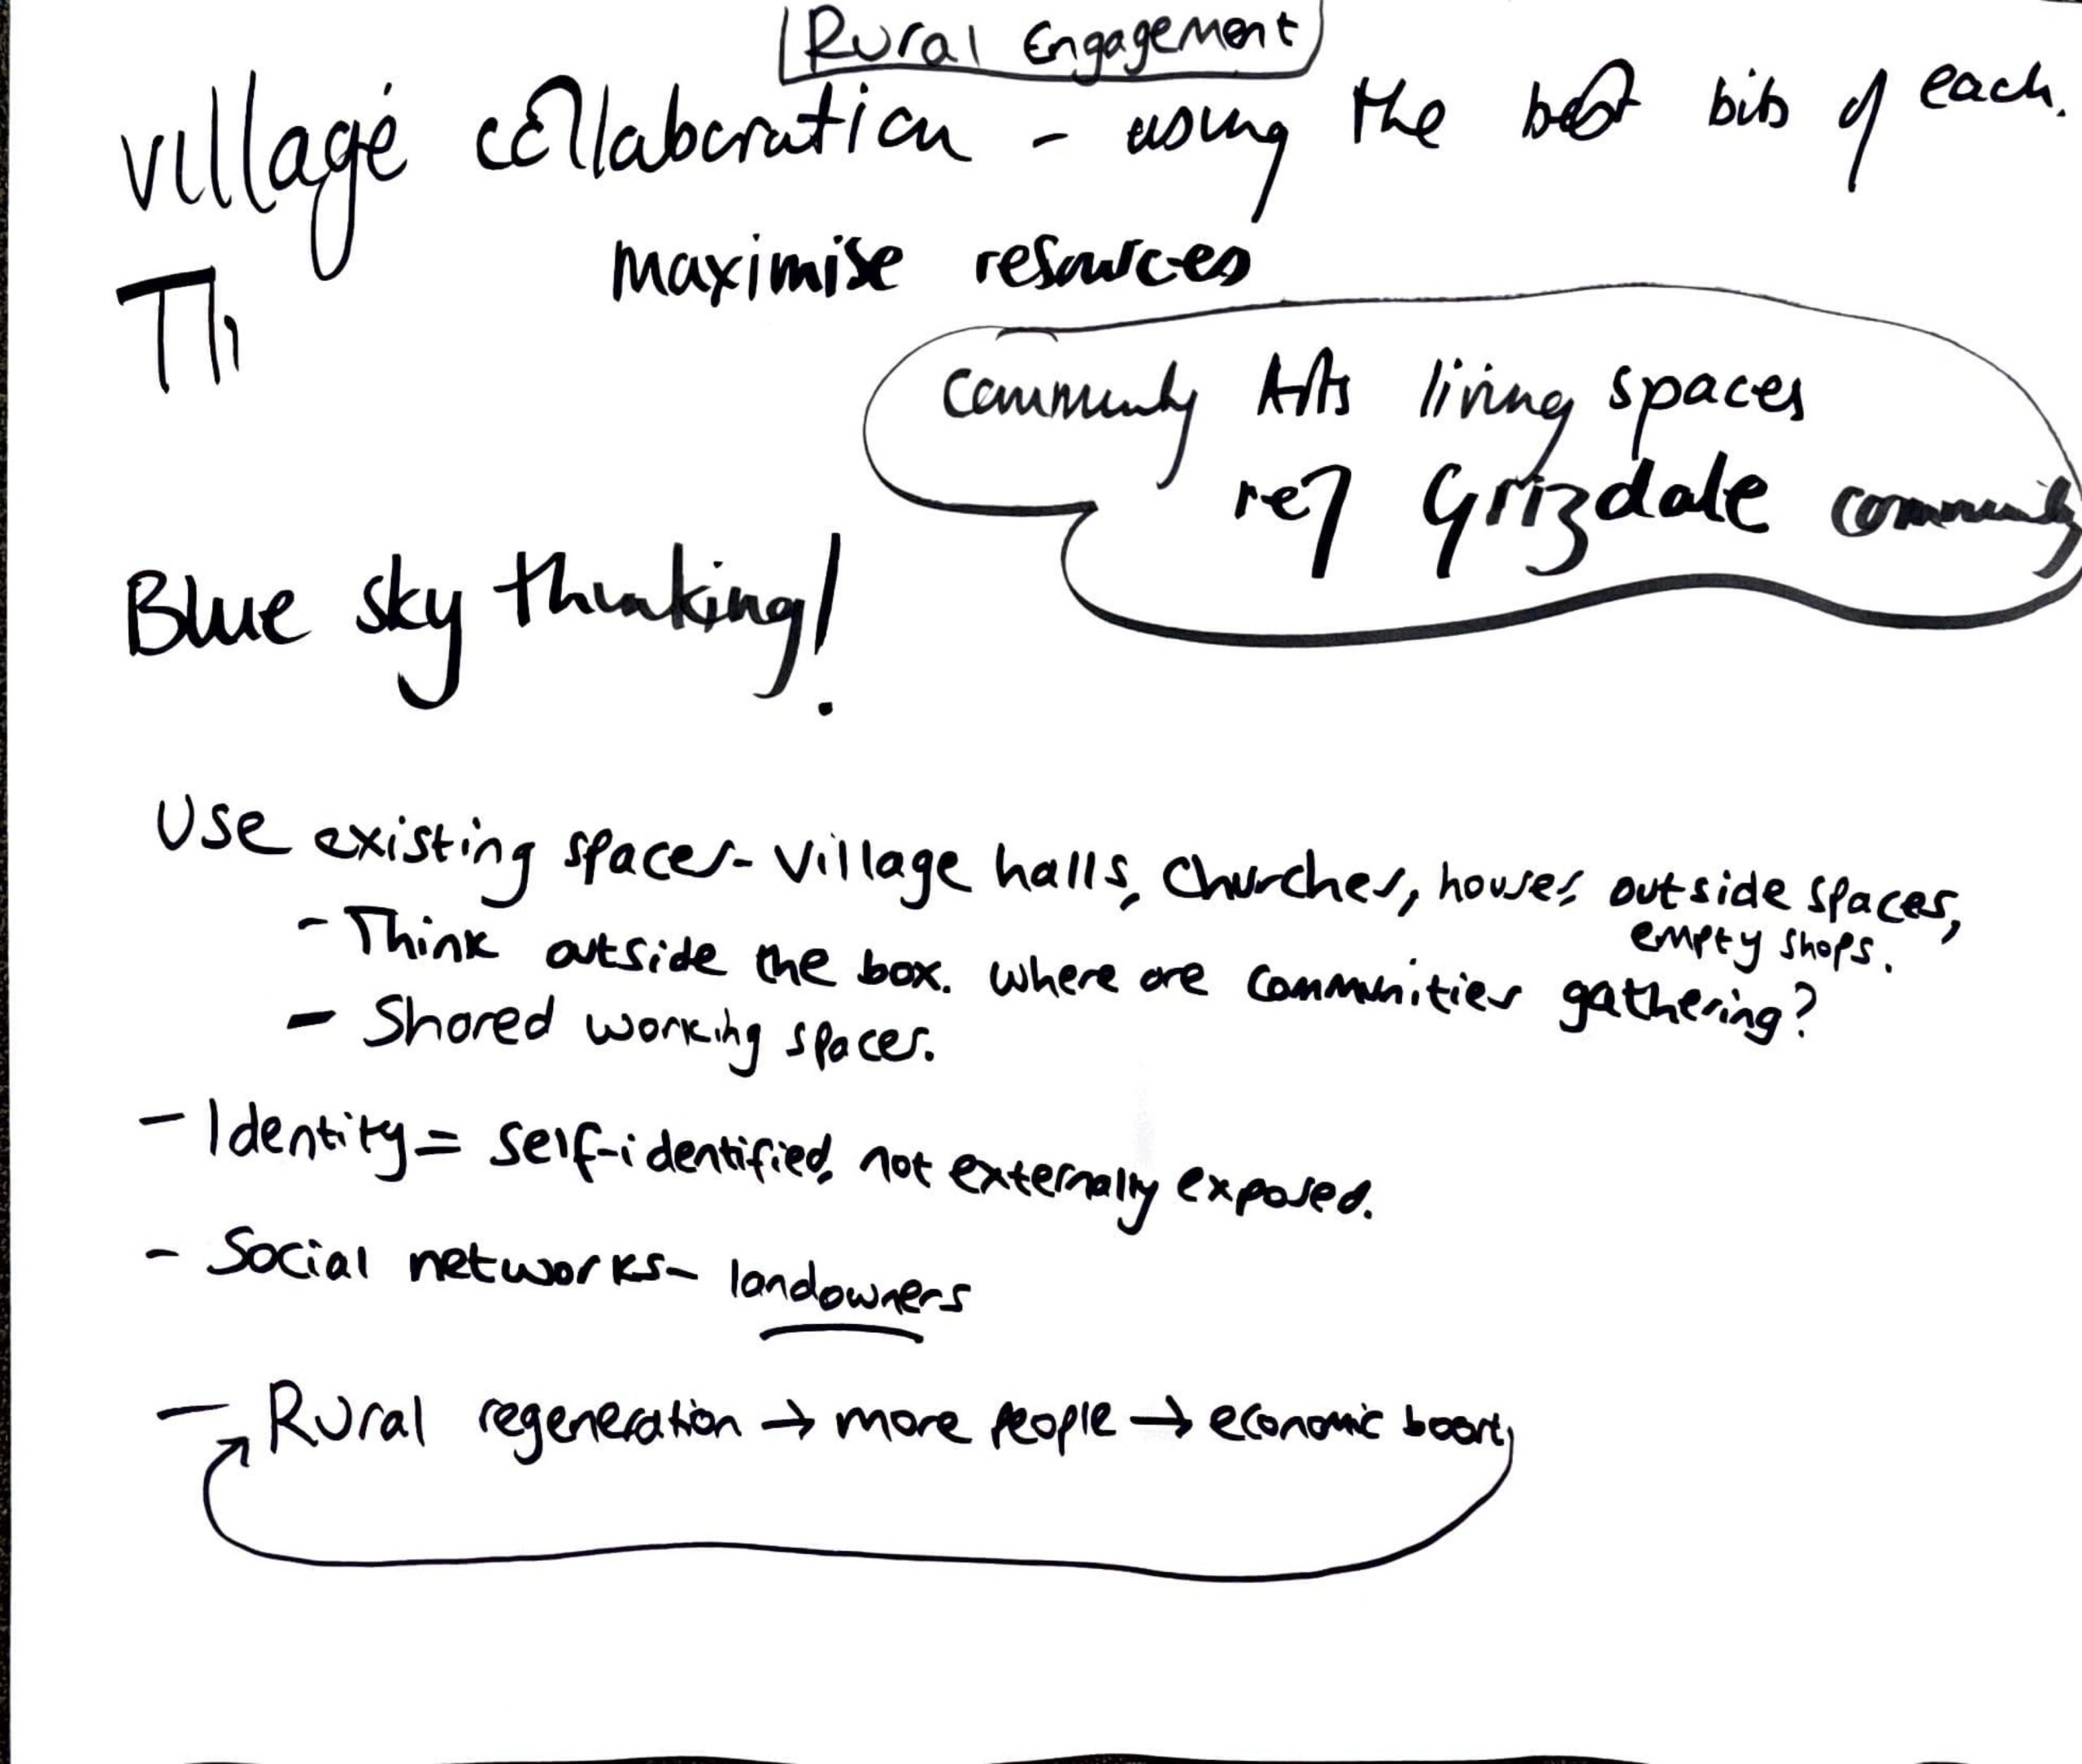 Rural Engagement
village collaboration - using the best bits of each.
maximise resources
Th
Community Arts living spaces
ref Grizdale community
Blue sky thinking!
Use existing spaces - Village halls, Churches, houses, outside spaces,
empty shops.
- Think outside the box. Where are communities gathering?
- Shared working spaces.
- Identity = self-identified, not externally exposed.
- Social networks - landowners
- Rural regeneration → more people → economic boost